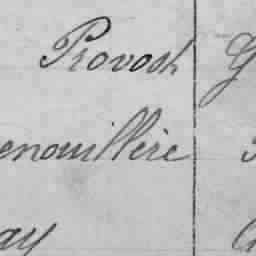 Provost G
enouillère
ay